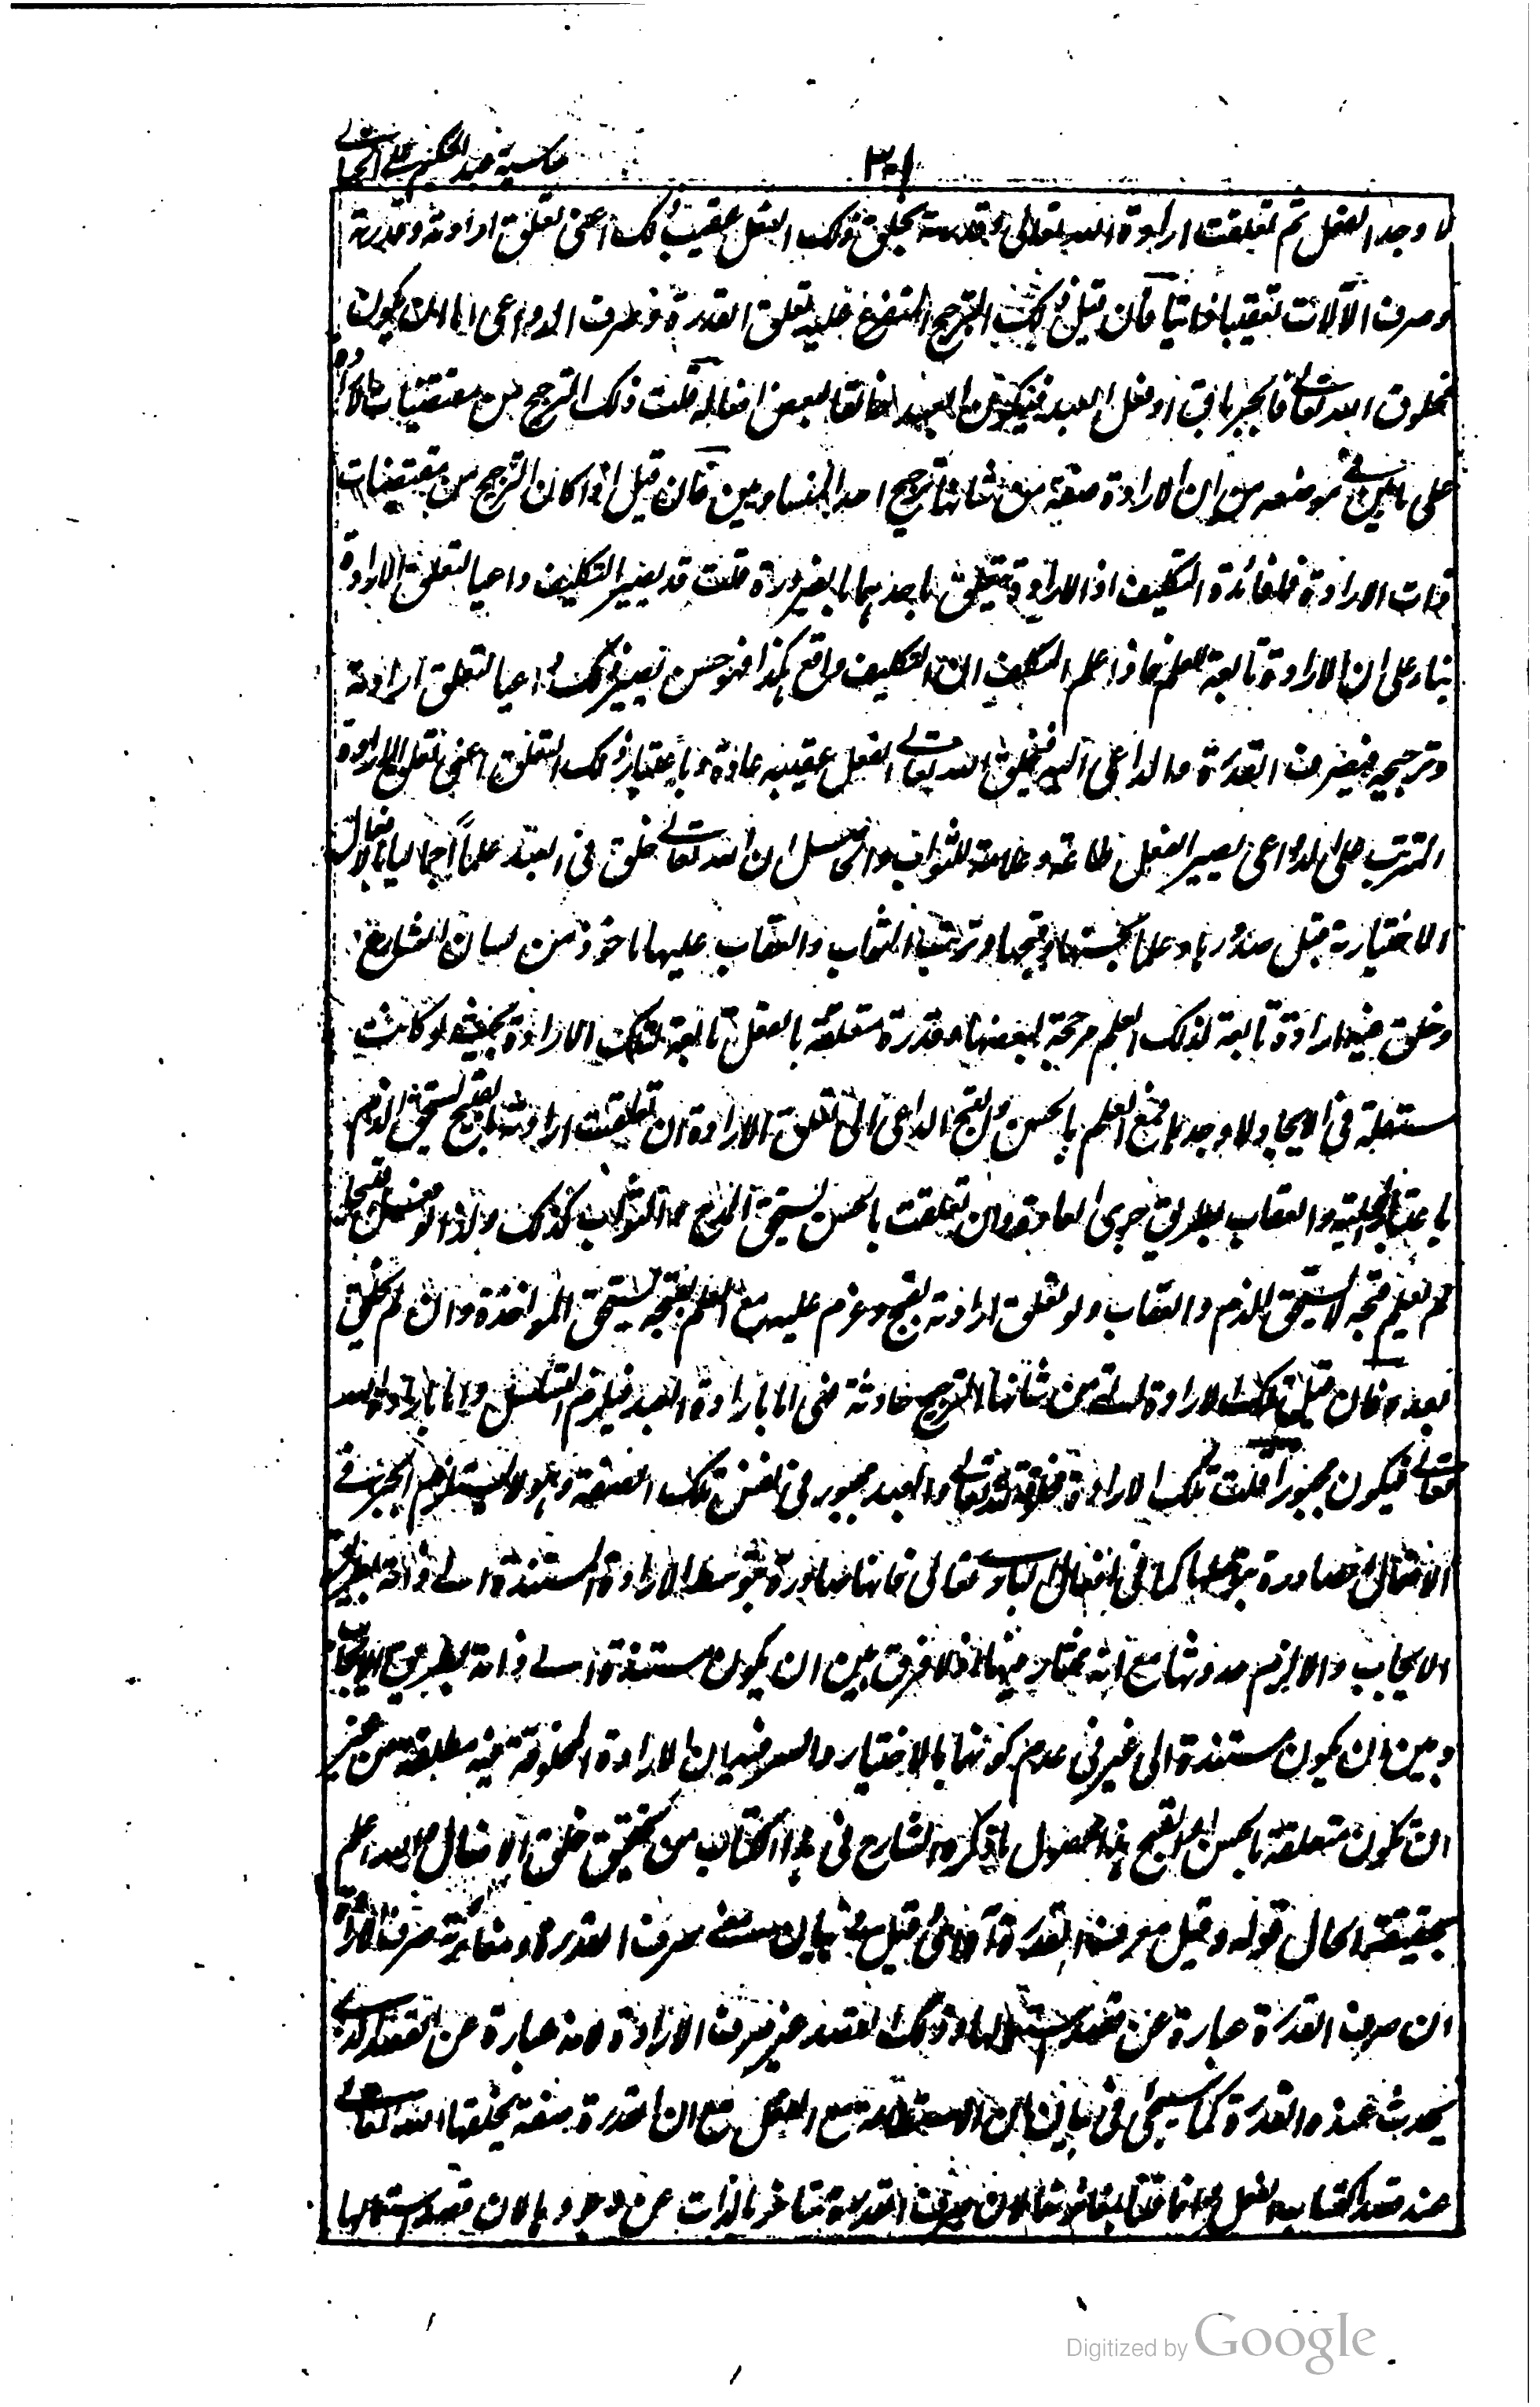 حاشية عبد الحكيم على الخيالي
٣٠١
لا وجد الفعل ثم تعلقت ارادة الله تعالى وقدرته بخلق ذلك الفعل عقيب ذلك اعنى تعلق ارادته وقدرته
وصرف الآلات تعقيبا ذاتيا فان قيل ذلك الترجيح المتفرع عليه تعلق القدرة وصرف الدواعى اما ان يكون
مخلوق الله تعالى فالجبر باق او فعل العبد فيكون العبد خالقا لبعض افعاله قلت ذلك الترجيح من مقتضيات الارادة
على ما بين فى موضعه من ان الارادة صفة من شانها ترجيح احد المتساويين فان قيل اذا كان الترجيح من مقتضيات
ذات الارادة فما فائدة التكليف اذ الارادة يتعلق باحدهما بالضرورة قلت قد يصير التكليف داعيا لتعلق الارادة
بناء على ان الارادة تابعة للعلم فاذا علم المكلف ان التكليف واقع بكذا فهو حسن يصير ذلك داعيا لتعلق ارادته
وترجيحه فيصرف القدرة والداعى اليه فيخلق الله تعالى الفعل عقيبه عادة وباعتبار ذلك التعلق اعنى تعلق الارادة
المترتب على الدواعى يصير الفعل طاعة وعلامة للثواب والحاصل ان الله تعالى خلق فى العبد علما اجماليا بالافعال
الاختيارية قبل صدورها وعلما بحسنها وقبحها وترتب الثواب والعقاب عليها ماخوذ من لسان الشارع
وخلق فيه ارادة تابعة لذلك العلم مرجحة لبعضها وقدرة متعلقة بالفعل تابعة لتلك الارادة بحيث لو كانت
مستقلة فى الايجاد لاوجدها فمع العلم بالحسن والقبح الداعى الى تعلق الارادة ان تعلقت ارادته بالقبيح يستحق الذم
باعتبار المحلية والعقاب بطريق جرى العادة وان تعلقت بالحسن يستحق المدح والثواب كذلك ولذا لو فعل قبيحا
لم يعلم قبحه لا يستحق الذم والعقاب ولو تعلق ارادته بقبيح وعزم عليه مع العلم بقبحه يستحق المواخذة وان لم يخلق
بعده فان قيل تلك الارادة التى من شانها الترجيح حادثة فهى اما بارادة العبد فيلزم التسلسل واما بارادة الله
تعالى فيكون مجبورا قلت تلك الارادة مخلوقة لله تعالى والعبد مجبور فى نفس تلك الصفة وهو لا يستلزم الجبر فى
الافعال الصادرة بتوسطها كما فى افعال البارى تعالى فانها صادرة بتوسط الارادة المستندة الى ذاته بطريق
الايجاب والا لزم حدوثها مع انه مختار فيها اذ لا فرق بين ان يكون مستندة الى ذاته بطريق الايجاب
وبين ان يكون مستندة الى غير فى عدم كونها بالاختيار والسر فيه ان الارادة المخلوقة فيه مطلقة من غير
ان تكون متعلقة بالحسن او القبح هذا محصول ما ذكره الشارع فى هذا الكتاب من تحقيق خلق الافعال والله اعلم
بحقيقة الحال قوله وقيل صرف القدرة آه اى قيل فى بيان معنى صرف القدرة ومغائرته صرف الارادة
ان صرف القدرة عبارة عن قصد استعمالها وذلك القصد غير صرف الارادة لانه عبارة عن القصد الذى
يحدث عنده القدرة كما سيجئ فى بيان ان الاستطاعة مع الفعل مع ان القدرة صفة يخلقها الله تعالى
عند قصد اكتساب الفعل وانما قلنا بتغائرهما لان صرف القدرة متاخر بالذات عن وجودها لان قصد استعمالها
Digitized by Google